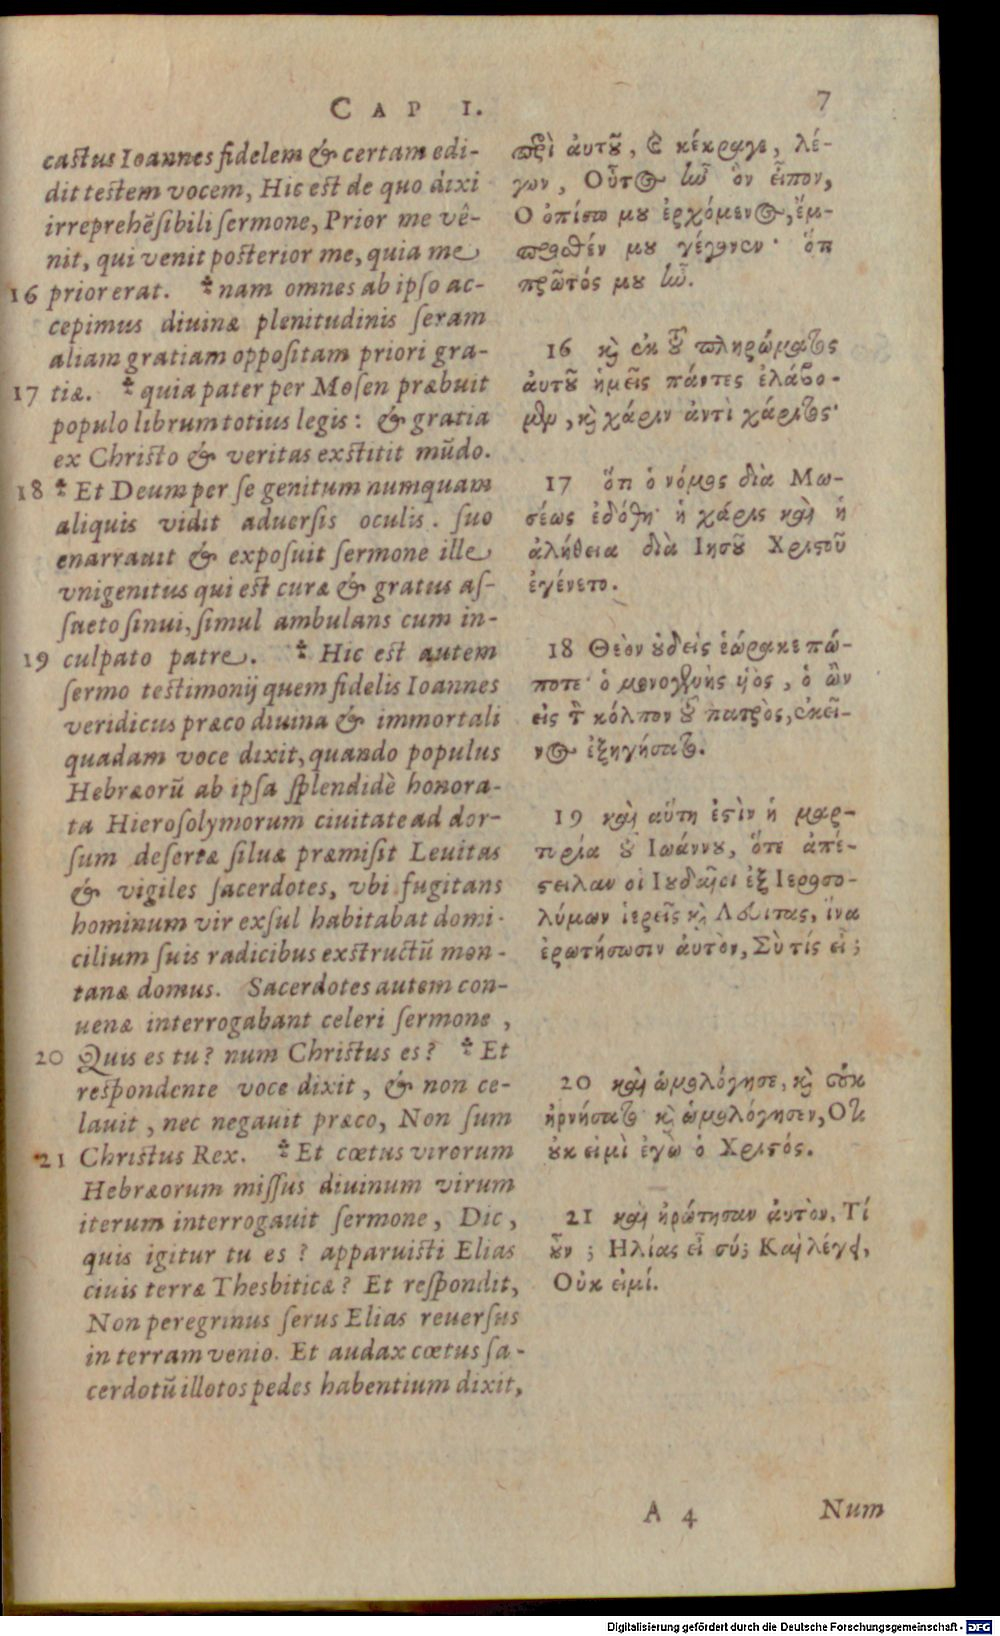 CAP I. 7
castus Ioannes fidelem & certam edi-
dit testem vocem, Hic est de quo dixi
irreprehẽsibili sermone, Prior me vê-
nit, qui venit posterior me, quia me
16 prior erat. ⁑ nam omnes ab ipso ac-
cepimus diuinæ plenitudinis seram
aliam gratiam oppositam priori gra-
17 tiæ. ⁑ quia pater per Mosen præbuit
populo librum totius legis: & gratia
ex Christo & veritas exstitit mũdo.
18 ⁑ Et Deum per se genitum numquam
aliquis vidit aduersis oculis. suo
enarrauit & exposuit sermone ille
vnigenitus qui est curæ & gratus as-
sueto sinui, simul ambulans cum in-
19 culpato patre. ⁑ Hic est autem
sermo testimonij quem fidelis Ioannes
veridicus præco diuina & immortali
quadam voce dixit, quando populus
Hebræorũ ab ipsa splendidè honora-
ta Hierosolymorum ciuitate ad dor-
sum desertæ siluæ præmisit Leuitas
& vigiles sacerdotes, vbi fugitans
hominum vir exsul habitabat domi-
cilium suis radicibus exstructũ mon-
tanæ domus. Sacerdotes autem con-
uenæ interrogabant celeri sermone,
20 Quis es tu? num Christus es? ⁑ Et
respondente voce dixit, & non ce-
lauit, nec negauit præco, Non sum
21 Christus Rex. ⁑ Et cœtus virorum
Hebræorum missus diuinum virum
iterum interrogauit sermone, Dic,
quis igitur tu es? apparuisti Elias
ciuis terræ Thesbiticæ? Et respondit,
Non peregrinus serus Elias reuersus
in terram venio. Et audax cœtus sa-
cerdotũ illotos pedes habentium dixit,
περὶ αὐτοῦ, καὶ κέκραγε, λέ-
γων, Οὗτος ἦν ὃν εἶπον,
Ο ὀπίσω μου ἐρχόμενος, ἔμ-
προσθέν μου γέγονεν· ὅτι
πρῶτός μου ἦν.
16 καὶ ἐκ τοῦ πληρώματος
αὐτοῦ ἡμεῖς πάντες ἐλάβο-
μεν, καὶ χάριν ἀντὶ χάριτος·
17 ὅτι ὁ νόμος διὰ Μω-
σέως ἐδόθη· ἡ χάρις καὶ ἡ
ἀλήθεια διὰ Ιησοῦ Χριστοῦ
ἐγένετο.
18 Θεὸν οὐδεὶς ἑώρακε πώ-
ποτε· ὁ μονογενὴς υἱὸς, ὁ ὢν
εἰς τὸν κόλπον τοῦ πατρὸς, ἐκεῖ-
νος ἐξηγήσατο.
19 καὶ αὕτη ἐστὶν ἡ μαρ-
τυρία τοῦ Ιωάννου, ὅτε ἀπέ-
στειλαν οἱ Ιουδαῖοι ἐξ Ιεροσο-
λύμων ἱερεῖς καὶ Λευίτας, ἵνα
ἐρωτήσωσιν αὐτὸν, Σὺ τίς εἶ;
20 καὶ ὡμολόγησε, καὶ οὐκ
ἠρνήσατο· καὶ ὡμολόγησεν, Οτι
οὐκ εἰμὶ ἐγὼ ὁ Χριστός.
21 καὶ ἠρώτησαν αὐτὸν, Τί
οὖν; Ηλίας εἶ σύ; Καὶ λέγει,
Οὐκ εἰμί.
A 4 Num
Digitalisierung gefördert durch die Deutsche Forschungsgemeinschaft - DFG